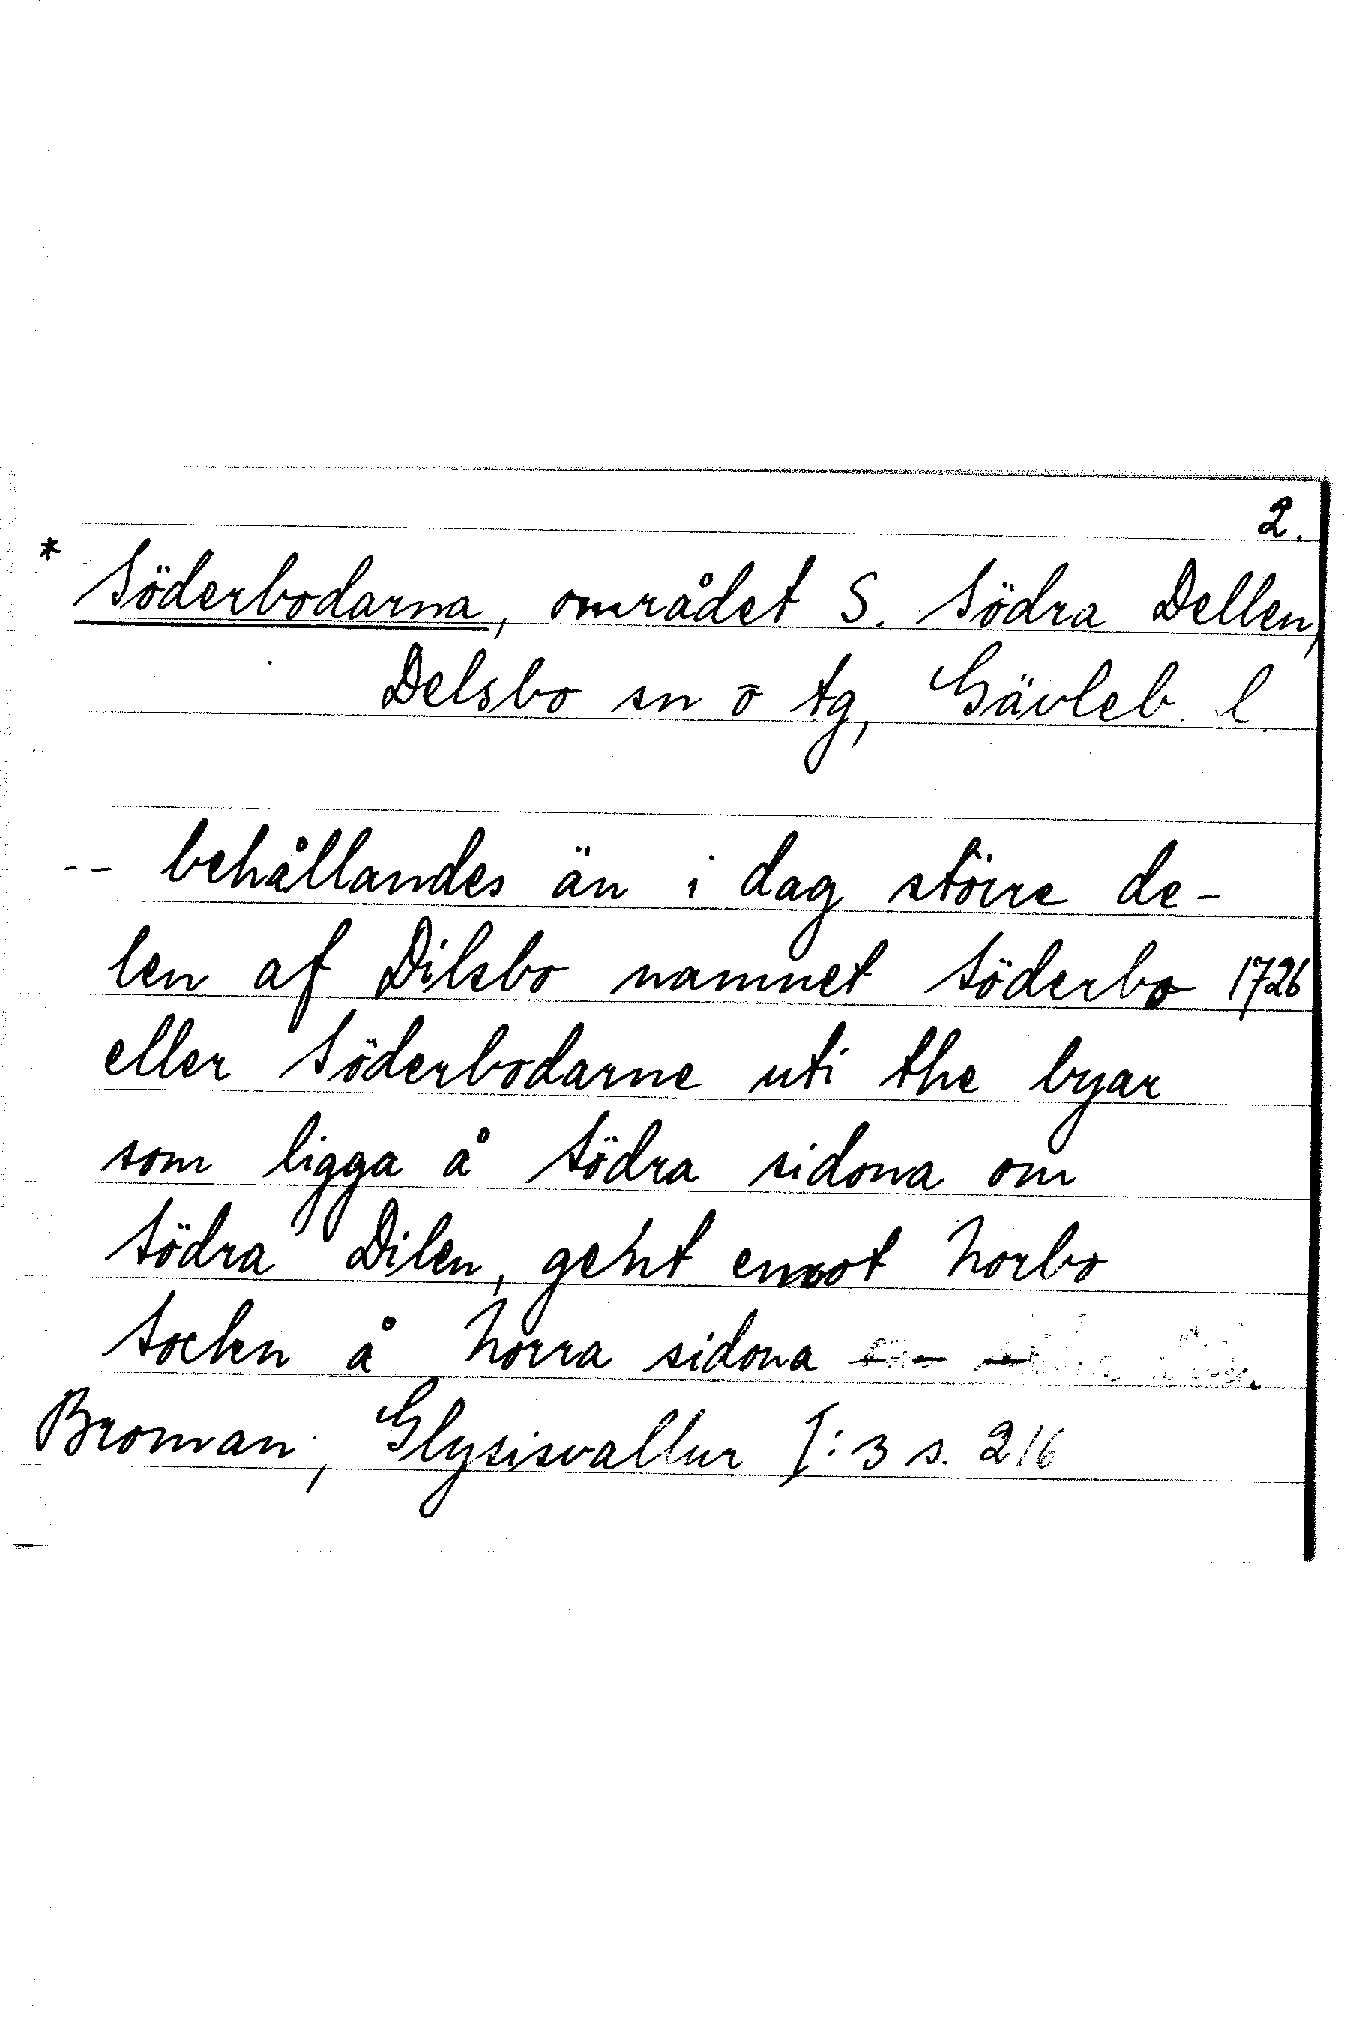 2.
* Söderbodarna, området S. Södra Dellen,
Delsbo sn o tg, Gävleb. l.
-- behållandes än i dag större de-
len af Dilsbo namnet Söderbo 1726
eller Söderbodarne uti the byar
som ligga å Södra sidona om
Södra Dilen, gent emot Norbo
Socken å Norra sidona
Broman, Glysisvallur I:3 s. 216